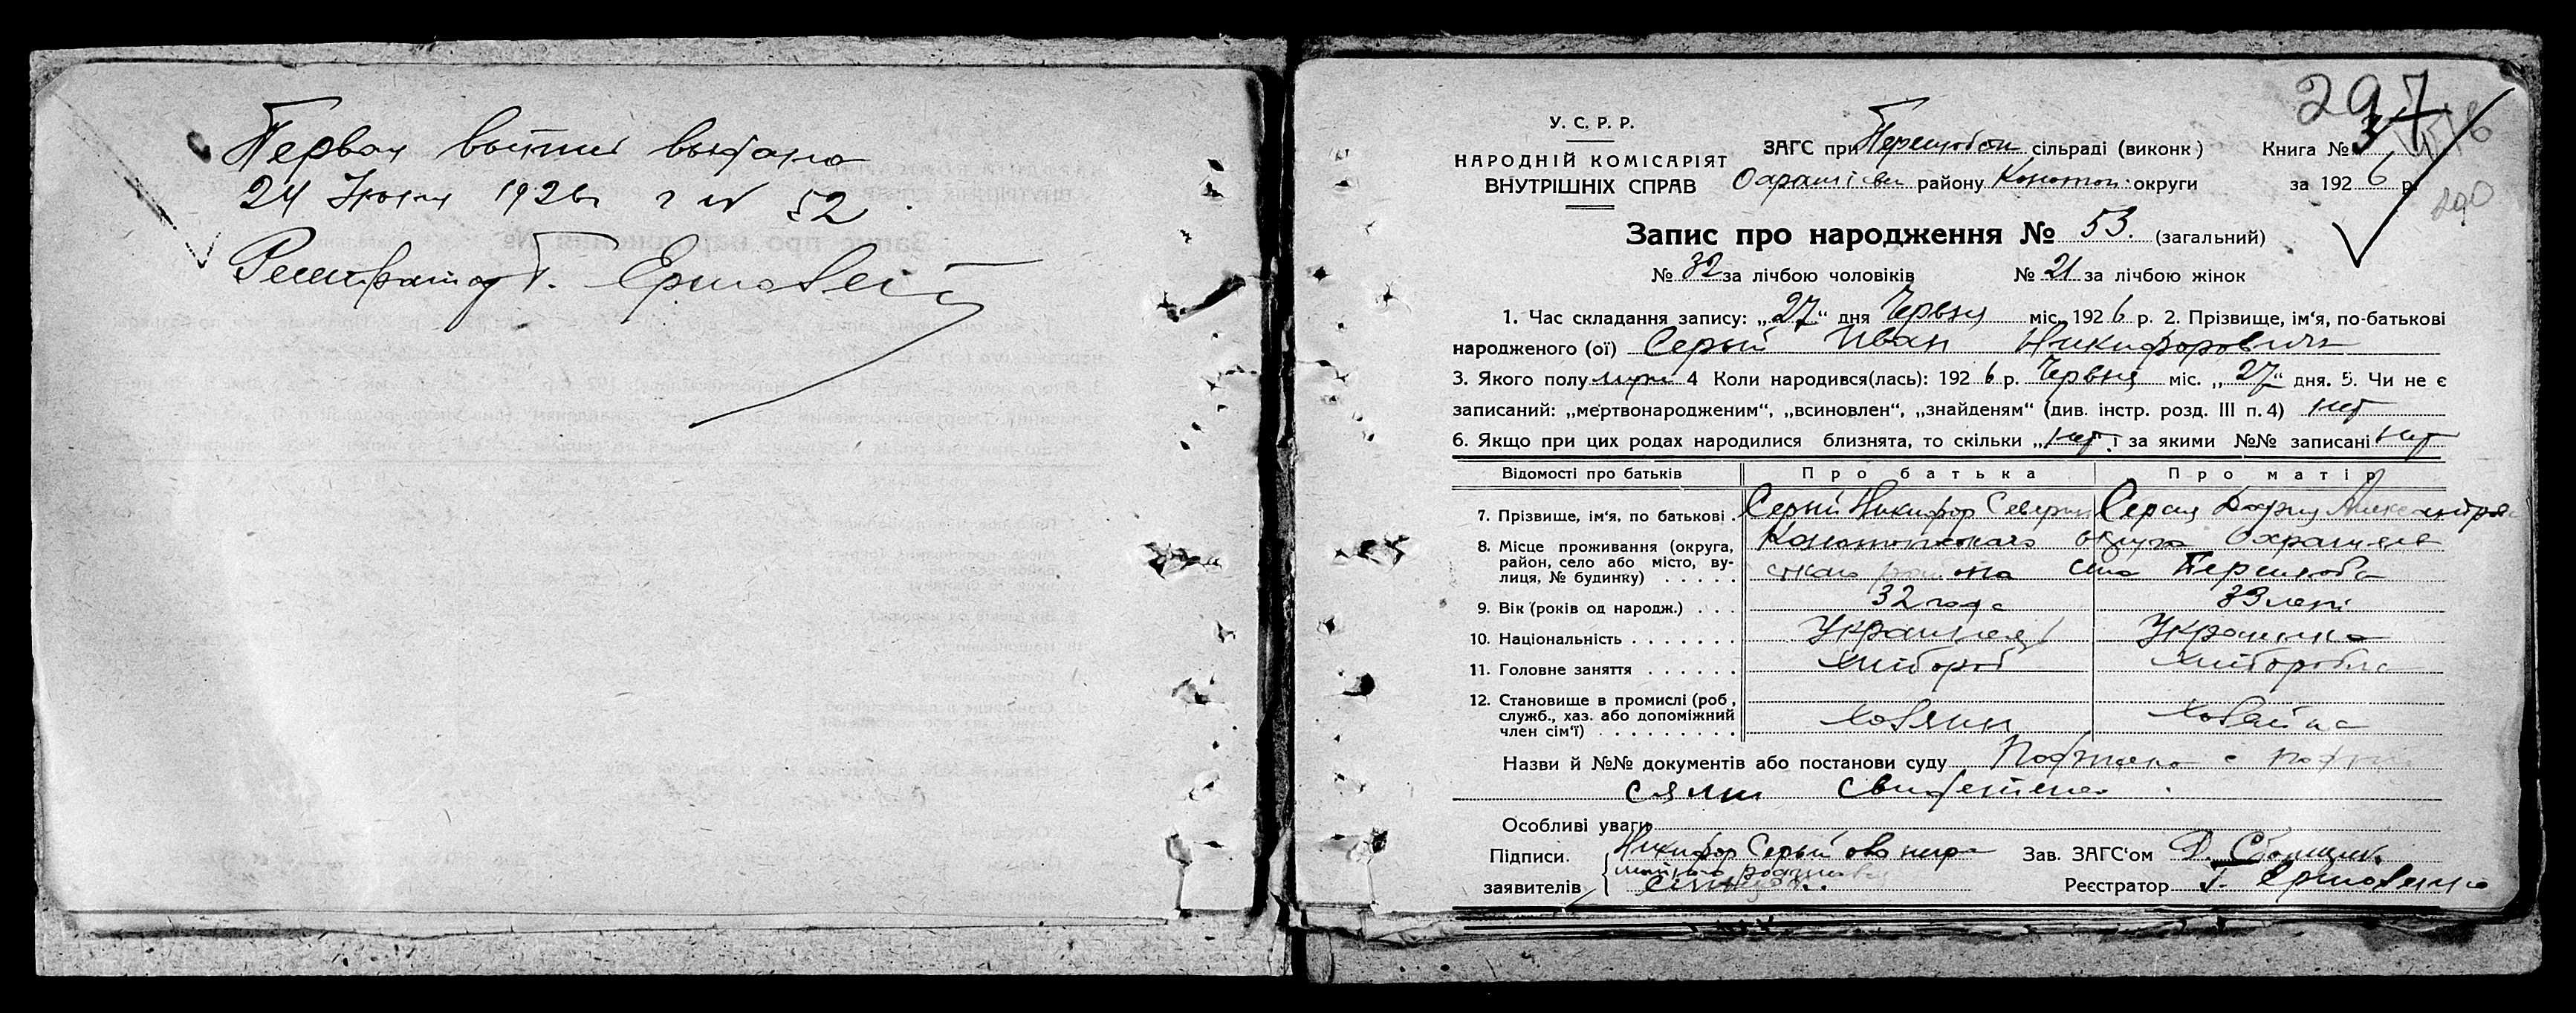 Первая выпись выдана
24 Июня 1926 г № 52
Регистратор Т. Ермовен
297
У. С. Р. Р.
НАРОДНІЙ КОМІСАРІЯТ
ВНУТРІШНІХ СПРАВ
ЗАГС при сільраді (виконк)
району Конотоп. округи
Книга № 3
за 1926 р.
290
Запис про народження № 53. (загальний)
№ 32 за лічбою чоловіків № 21 за лічбою жінок
1. Час складання запису: „27“ дня Червня міс. 1926 р. 2. Прізвище, ім‘я, по-батькові
народженого (ої) Серый Иван Никифорович
3. Якого полу муж 4 Коли народився(лась): 1926 р. Червня міс. „27“ дня. 5. Чи не є
записаний: „мертвонародженим“, „всиновлен“, „знайденям“ (див. інстр. розд. III п. 4) нет
6. Якщо при цих родах народилися близнята, то скільки „нет“ і за якими №№ записані нет
Відомості про батьків Про батька Про матір
7. Прізвище, ім‘я, по батькові . Серый Никифор Северин Серая Дария Александров
8. Місце проживання (округа, Конотопского округа
район, село або місто, ву- района села
лиця, № будинку) . . . . .
9. Вік (років од народж.) . . . 32 года 33 лет
10. Національність . . . . . . . Украинец Украинка
11. Головне заняття . . . . . . Хлібороб Хліборобка
12. Становище в промислі (роб,
служб., хаз. або допоміжний Хозяин Хозяйка
член сім‘ї) . . . . . . . . .
Назви й №№ документів або постанови суду
свидетелей
Особливі уваги
Підписи. Никифор Серый Зав. ЗАГС‘ом Д. Сборщик
заявителів Реєстратор Т.